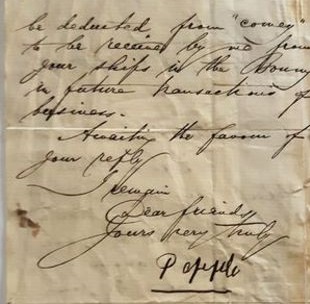 be deducted from "comey"
to be received by me from
your ships in the Bonny
in future transactions of
business.
Awaiting the favour of
your reply
I remain
Dear friends
Yours very truly